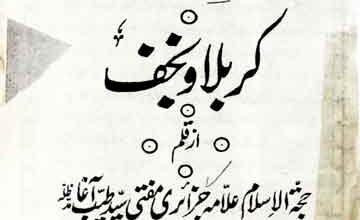 کربلا و نجف
از قلم
حجۃ الاسلام علامہ جزائری مفتی سید طیب آغا مدظلہ